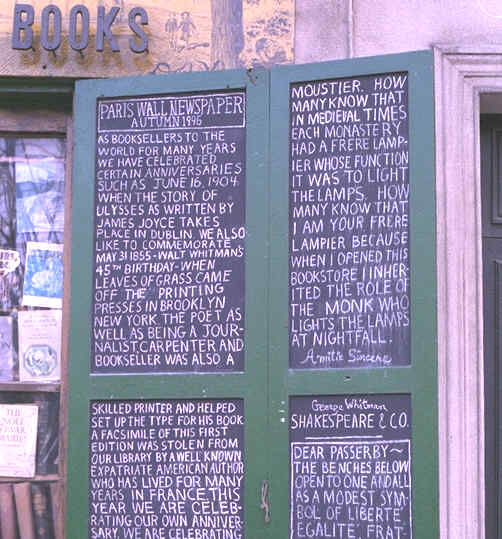 BOOKS
PARIS WALL NEWSPAPER
AUTUMN 1996
AS BOOKSELLERS TO THE
WORLD FOR MANY YEARS
WE HAVE CELEBRATED
CERTAIN ANNIVERSARIES
SUCH AS JUNE 16, 1904
WHEN THE STORY OF
ULYSSES AS WRITTEN BY
JAMES JOYCE TAKES
PLACE IN DUBLIN. WE ALSO
LIKE TO COMMEMORATE
MAY 31 1855 - WALT WHITMAN'S
45TH BIRTHDAY - WHEN
LEAVES OF GRASS CAME
OFF THE PRINTING
PRESSES IN BROOKLYN
NEW YORK THE POET AS
WELL AS BEING A JOUR-
NALIST, CARPENTER AND
BOOKSELLER WAS ALSO A
SKILLED PRINTER AND HELPED
SET UP THE TYPE FOR HIS BOOK
A FACSIMILE OF THIS FIRST
EDITION WAS STOLEN FROM
OUR LIBRARY BY A WELL KNOWN
EXPATRIATE AMERICAN AUTHOR
WHO HAS LIVED FOR MANY
YEARS IN FRANCE. THIS
YEAR WE ARE CELEB-
RATING OUR OWN ANNIVER-
SARY. WE ARE CELEBRATING
MOUSTIER. HOW
MANY KNOW THAT
IN MEDIEVAL TIMES
EACH MONASTERY
HAD A FRERE LAMP-
IER WHOSE FUNCTION
IT WAS TO LIGHT
THE LAMPS. HOW
MANY KNOW THAT
I AM YOUR FRERE
LAMPIER BECAUSE
WHEN I OPENED THIS
BOOKSTORE I INHER-
ITED THE ROLE OF
THE MONK WHO
LIGHTS THE LAMPS
AT NIGHTFALL.
Amitié Sincère
George Whitman
SHAKESPEARE & CO.
DEAR PASSERBY~
THE BENCHES BELOW
OPEN TO ONE AND ALL
AS A MODEST SYM-
BOL OF LIBERTÉ
EGALITÉ, FRAT-